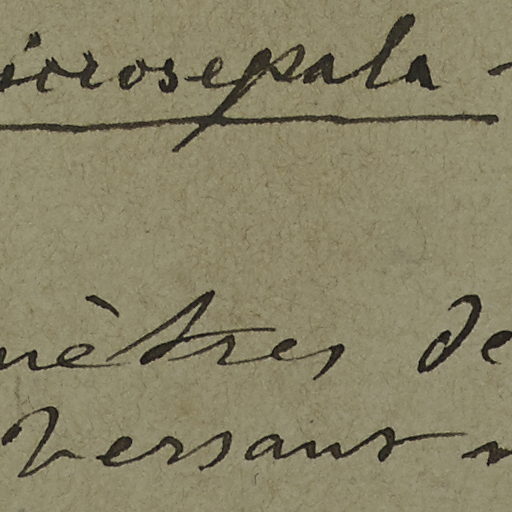 icrosepala -
mètres de
Versant n